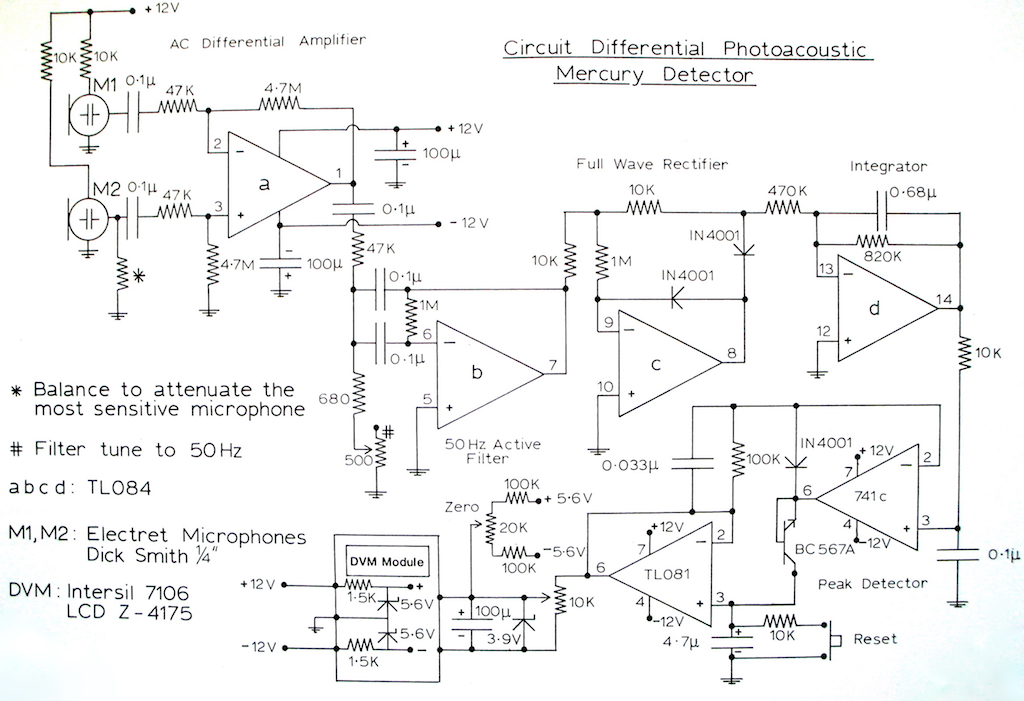 + 12V
AC Differential Amplifier
Circuit Differential Photoacoustic
Mercury Detector
10K
10K
M1
0·1µ
47K
4·7M
2
−
a
1
+ 12V
+
−
100µ
M2
0·1µ
47K
3
+
0·1µ
− 12V
4·7M
−
+
100µ
47K
Full Wave Rectifier
Integrator
10K
470K
0·68µ
IN4001
820K
10K
1M
IN4001
13
−
d
14
12
+
10K
0·1µ
1M
0·1µ
6
−
b
7
5
+
9
−
c
8
10
+
680
#
500
50Hz Active
Filter
* Balance to attenuate the
most sensitive microphone
# Filter tune to 50Hz
a b c d : TL084
M1, M2 : Electret Microphones
Dick Smith ¼"
DVM : Intersil 7106
LCD Z-4175
*
0·033µ
100K
IN4001
+12V
2
7
−
6
741c
4
+
3
−12V
BC567A
0·1µ
Peak Detector
100K
+ 5·6V
Zero
20K
−5·6V
100K
+12V
7
2
−
6
TL081
4
+
3
−12V
DVM Module
+12V
1·5K
+
5·6V
5·6V
−12V
−
1·5K
+
100µ
−
3·9V
10K
4·7µ
+
−
10K
Reset